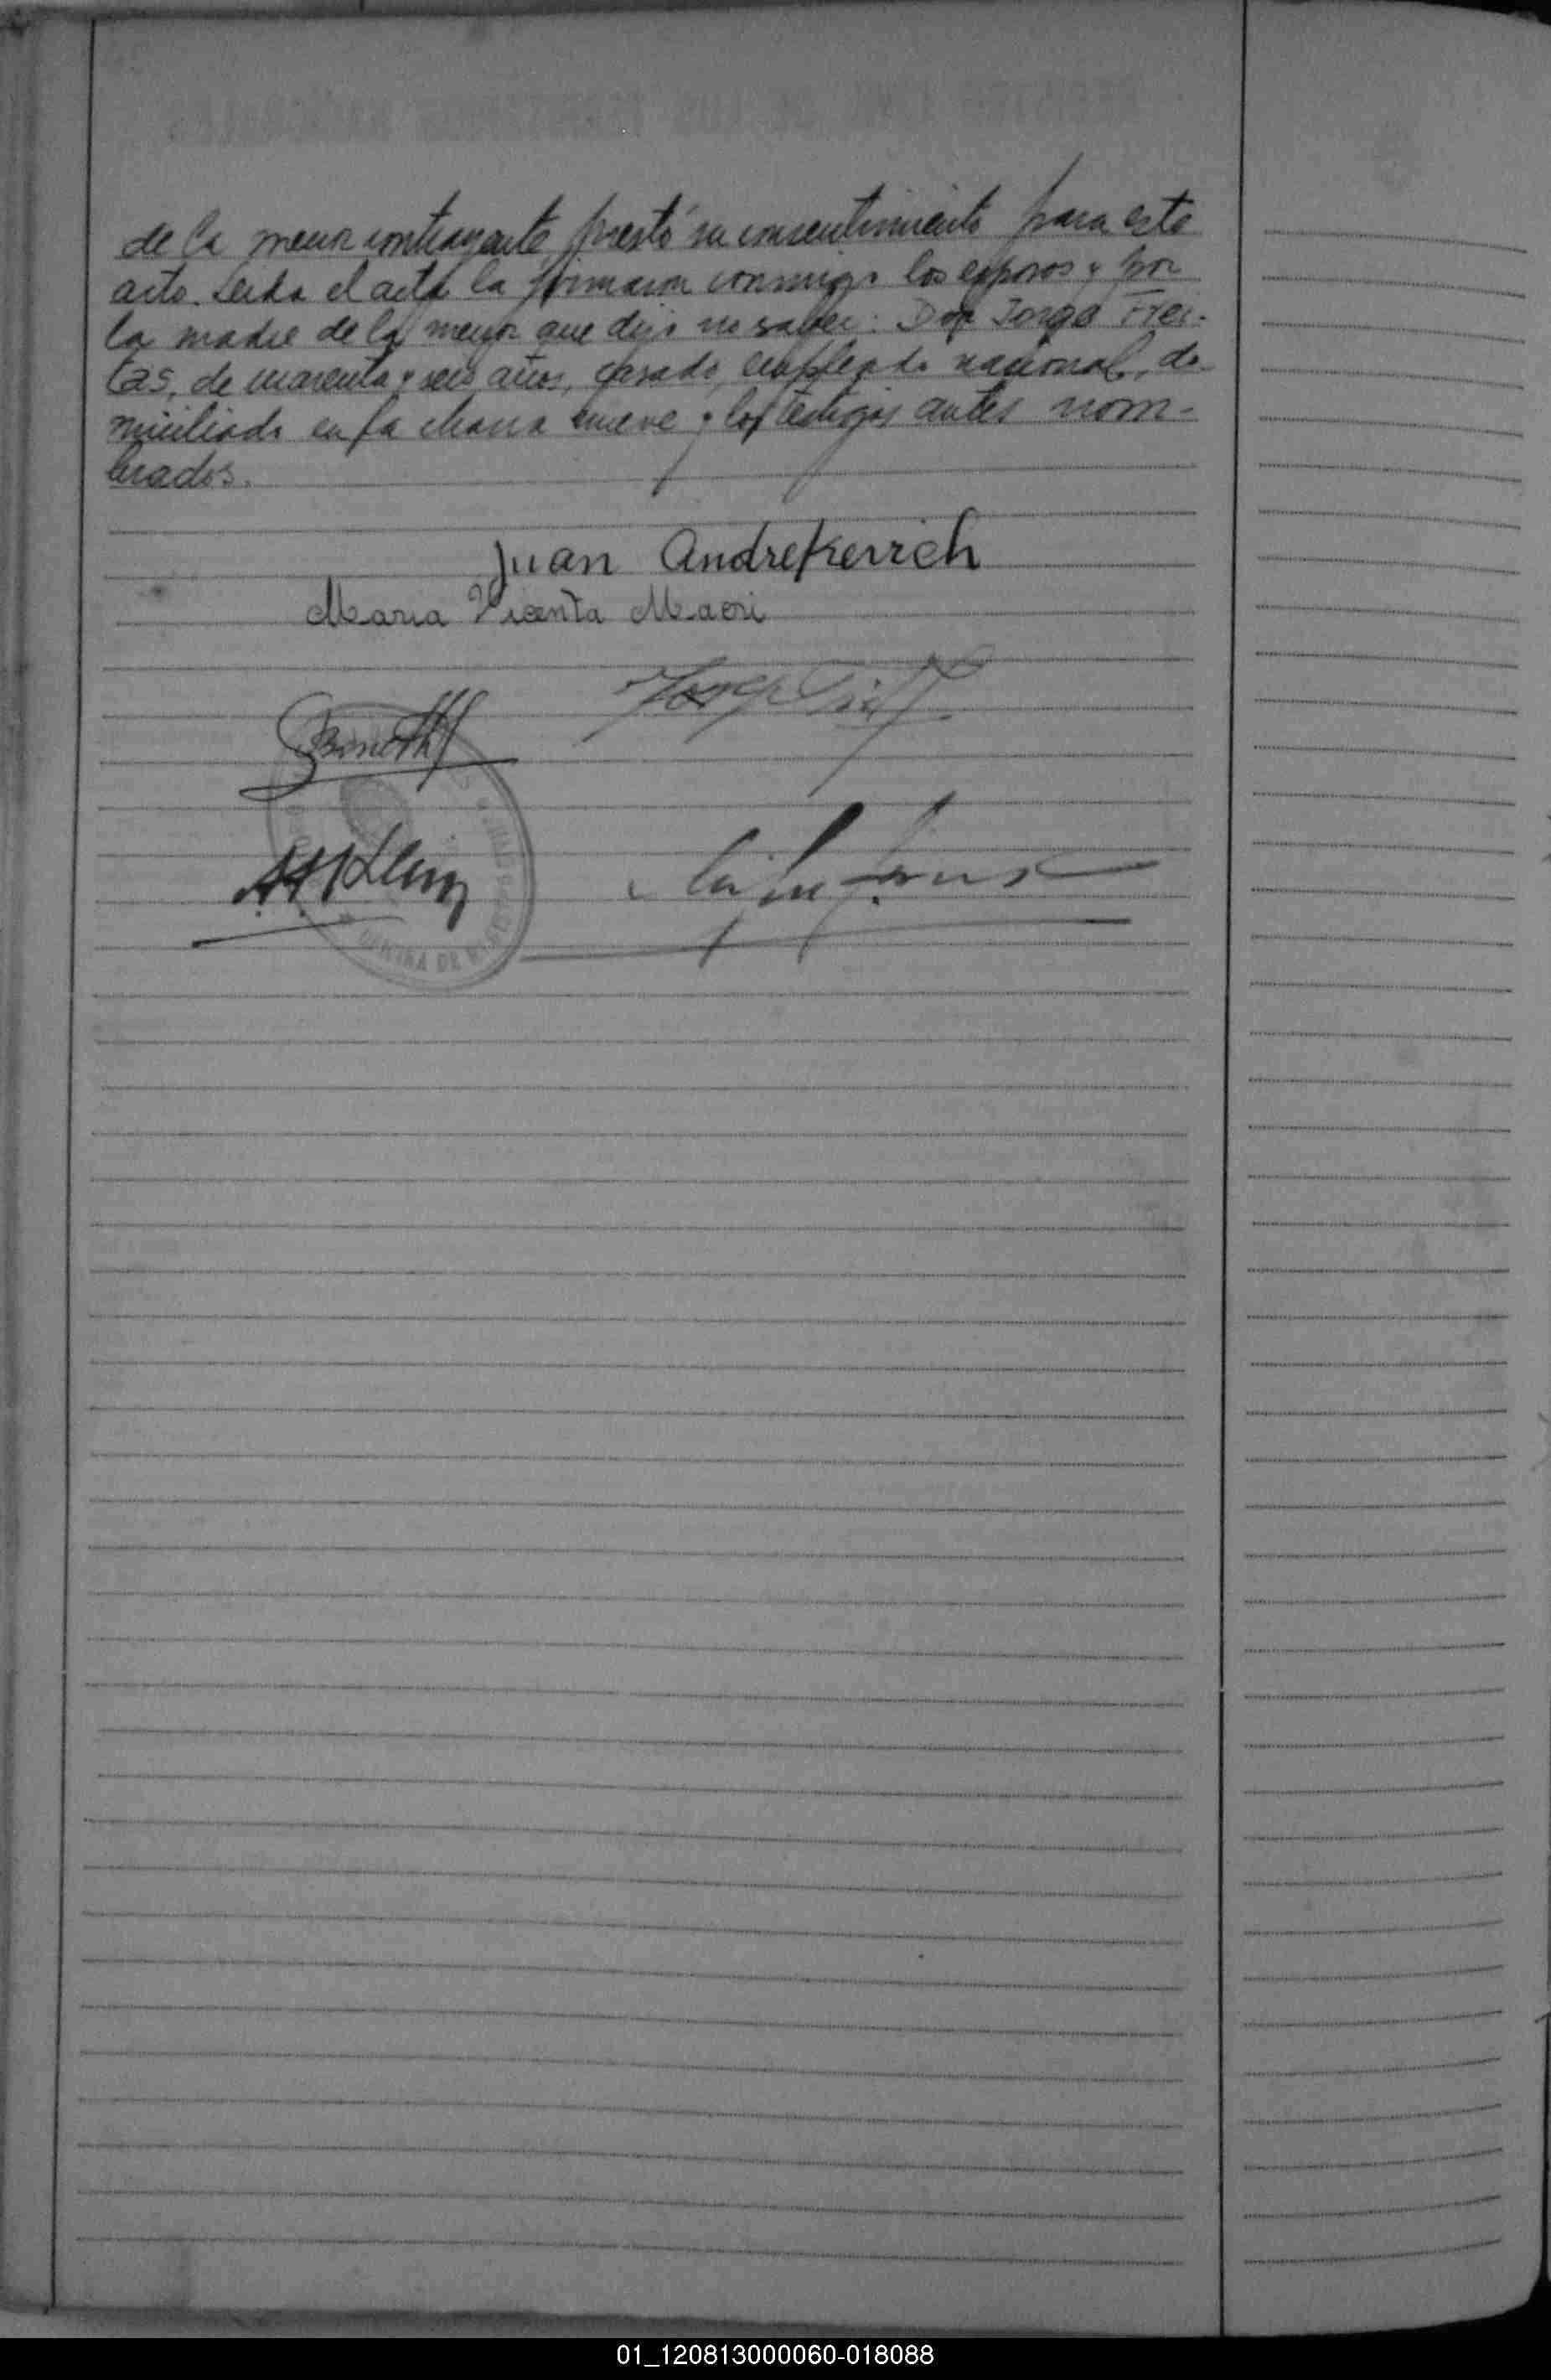 de la menor contrayente, prestó su consentimiento para este
acto. Leida el acta la firmaron conmigo los esposos y por
la madre de la menor que dijo no saber: Don Jorge Frei-
tas, de cuarenta y seis años, casado, empleado nacional, do-
miciliado en la chacra nueve y los testigos antes nom-
brados.
Juan Andrekervich
Maria Vicenta Macri
OFICINA DE
01_120813000060-018088